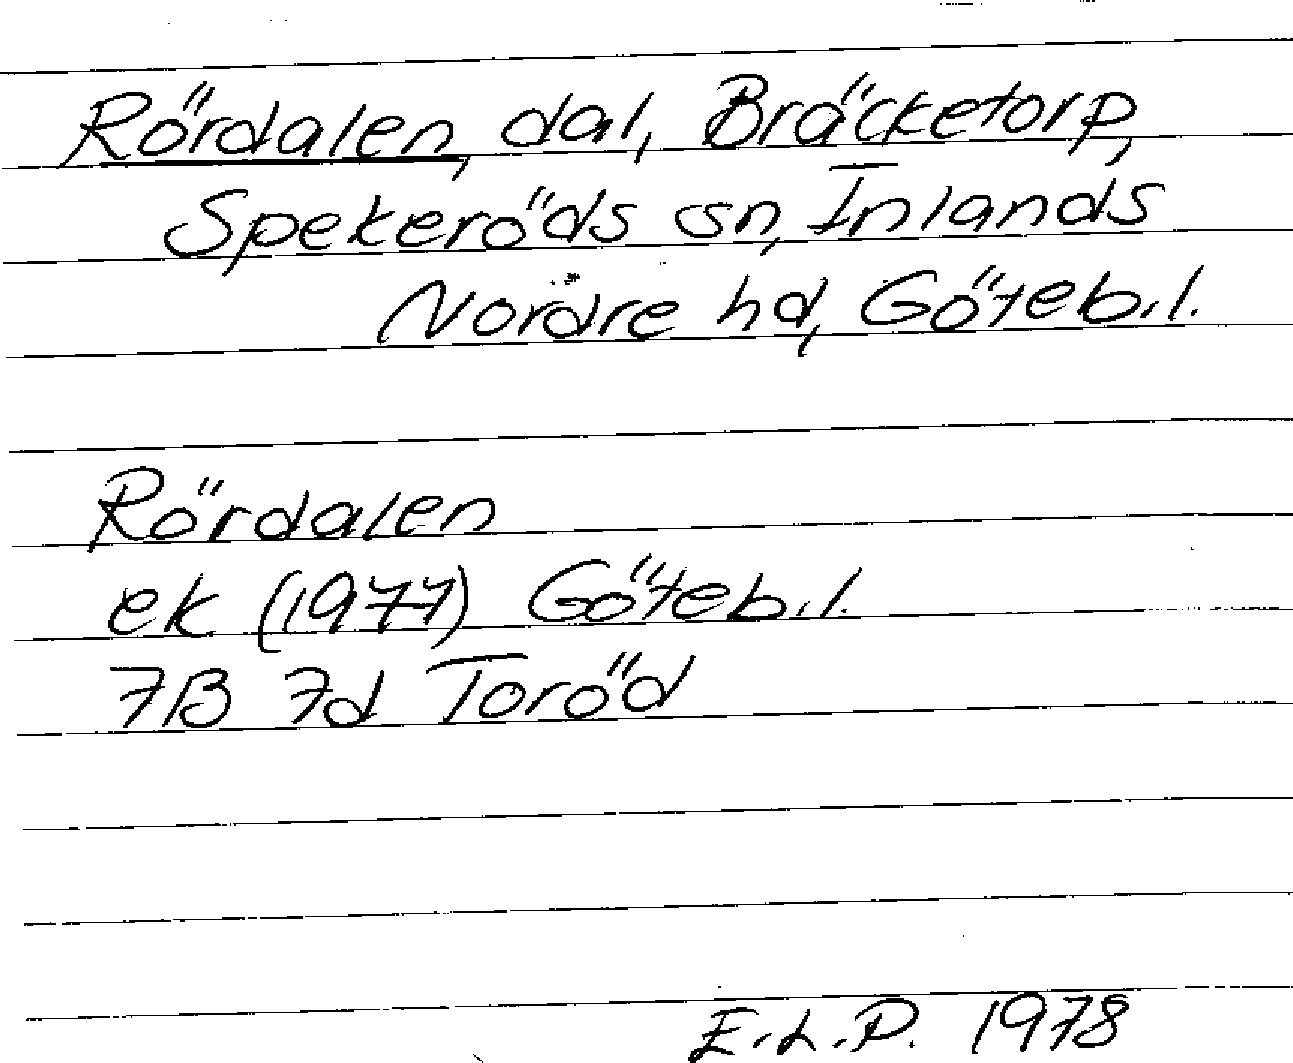 Rördalen, dal, Bräcketorp,
Spekeröds sn, Inlands
Nordre hd, Göteb.l.
Rördalen
ek (1977) Göteb.l.
7B 7d Toröd
E.L.P. 1978